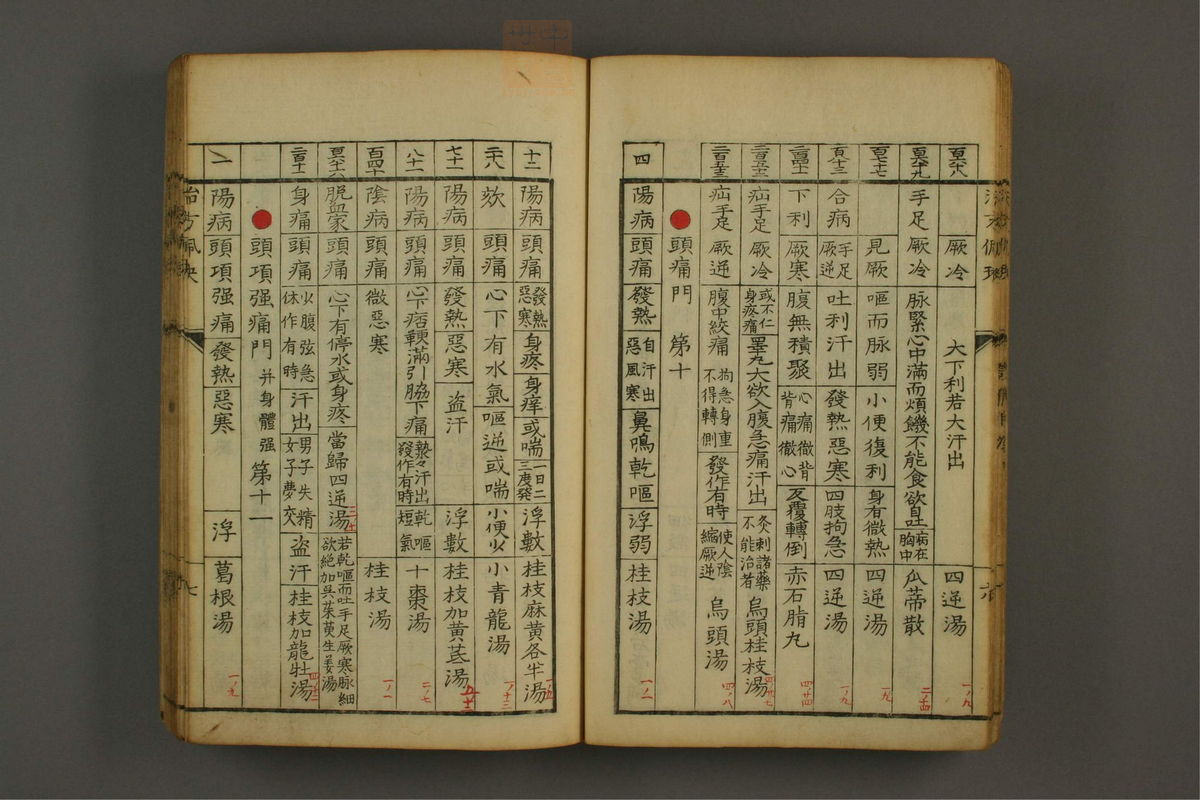 厥冷 大下利若大汗出 四逆湯 一ノ九
手足 厥冷 脉緊心中滿而煩饑不能食欲自吐 病在胸中 瓜蒂散
見厥 嘔而脉弱小便復利 身有微熱 四逆湯 一ノ九
合病 手足厥逆 吐利汗出 發熱惡寒 四肢拘急 四逆湯 一ノ九
下利 厥寒 腹無積聚 心痛徹背背痛徹心 反覆轉倒 赤石脂丸
疝手足 厥冷 或不仁身疼痛 睾丸大欲入腹急痛汗出 灸刺諸藥不能治者 烏頭桂枝湯
疝手足 厥逆 腹中絞痛 拘急身重不得轉側 發作有時 使人陰縮厥逆 烏頭湯 四ノ八
頭痛門 第十
四 陽病 頭痛 發熱 自汗出惡風寒 鼻鳴乾嘔 浮弱 桂枝湯 一ノ一
十二 陽病 頭痛 發熱惡寒 身疼 身痒 或喘 一日二三度發 浮數 桂枝麻黄各半湯
欬 頭痛 心下有水氣 嘔逆或喘 小便少 小青龍湯 一ノ十二
七十一 陽病 頭痛 發熱惡寒 盗汗 浮數 桂枝加黄茋湯
八十一 陽病 頭痛 心下痞鞕滿引脇下痛 漐々汗出發作有時 乾嘔短氣 十棗湯 二ノ七
陰病 頭痛 微惡寒 桂枝湯 一ノ一
脱血家 頭痛 心下有停水或身疼 當歸四逆湯 若乾嘔而吐手足厥寒脉細欲絶加吳茱萸生姜湯
身痛 頭痛 少腹弦急休作有時 汗出 男子失精女子夢交 盗汗 桂枝加龍牡湯
頭項强痛門 并身體强 第十一
一 陽病 頭項强痛 發熱惡寒 浮 葛根湯 一ノ九